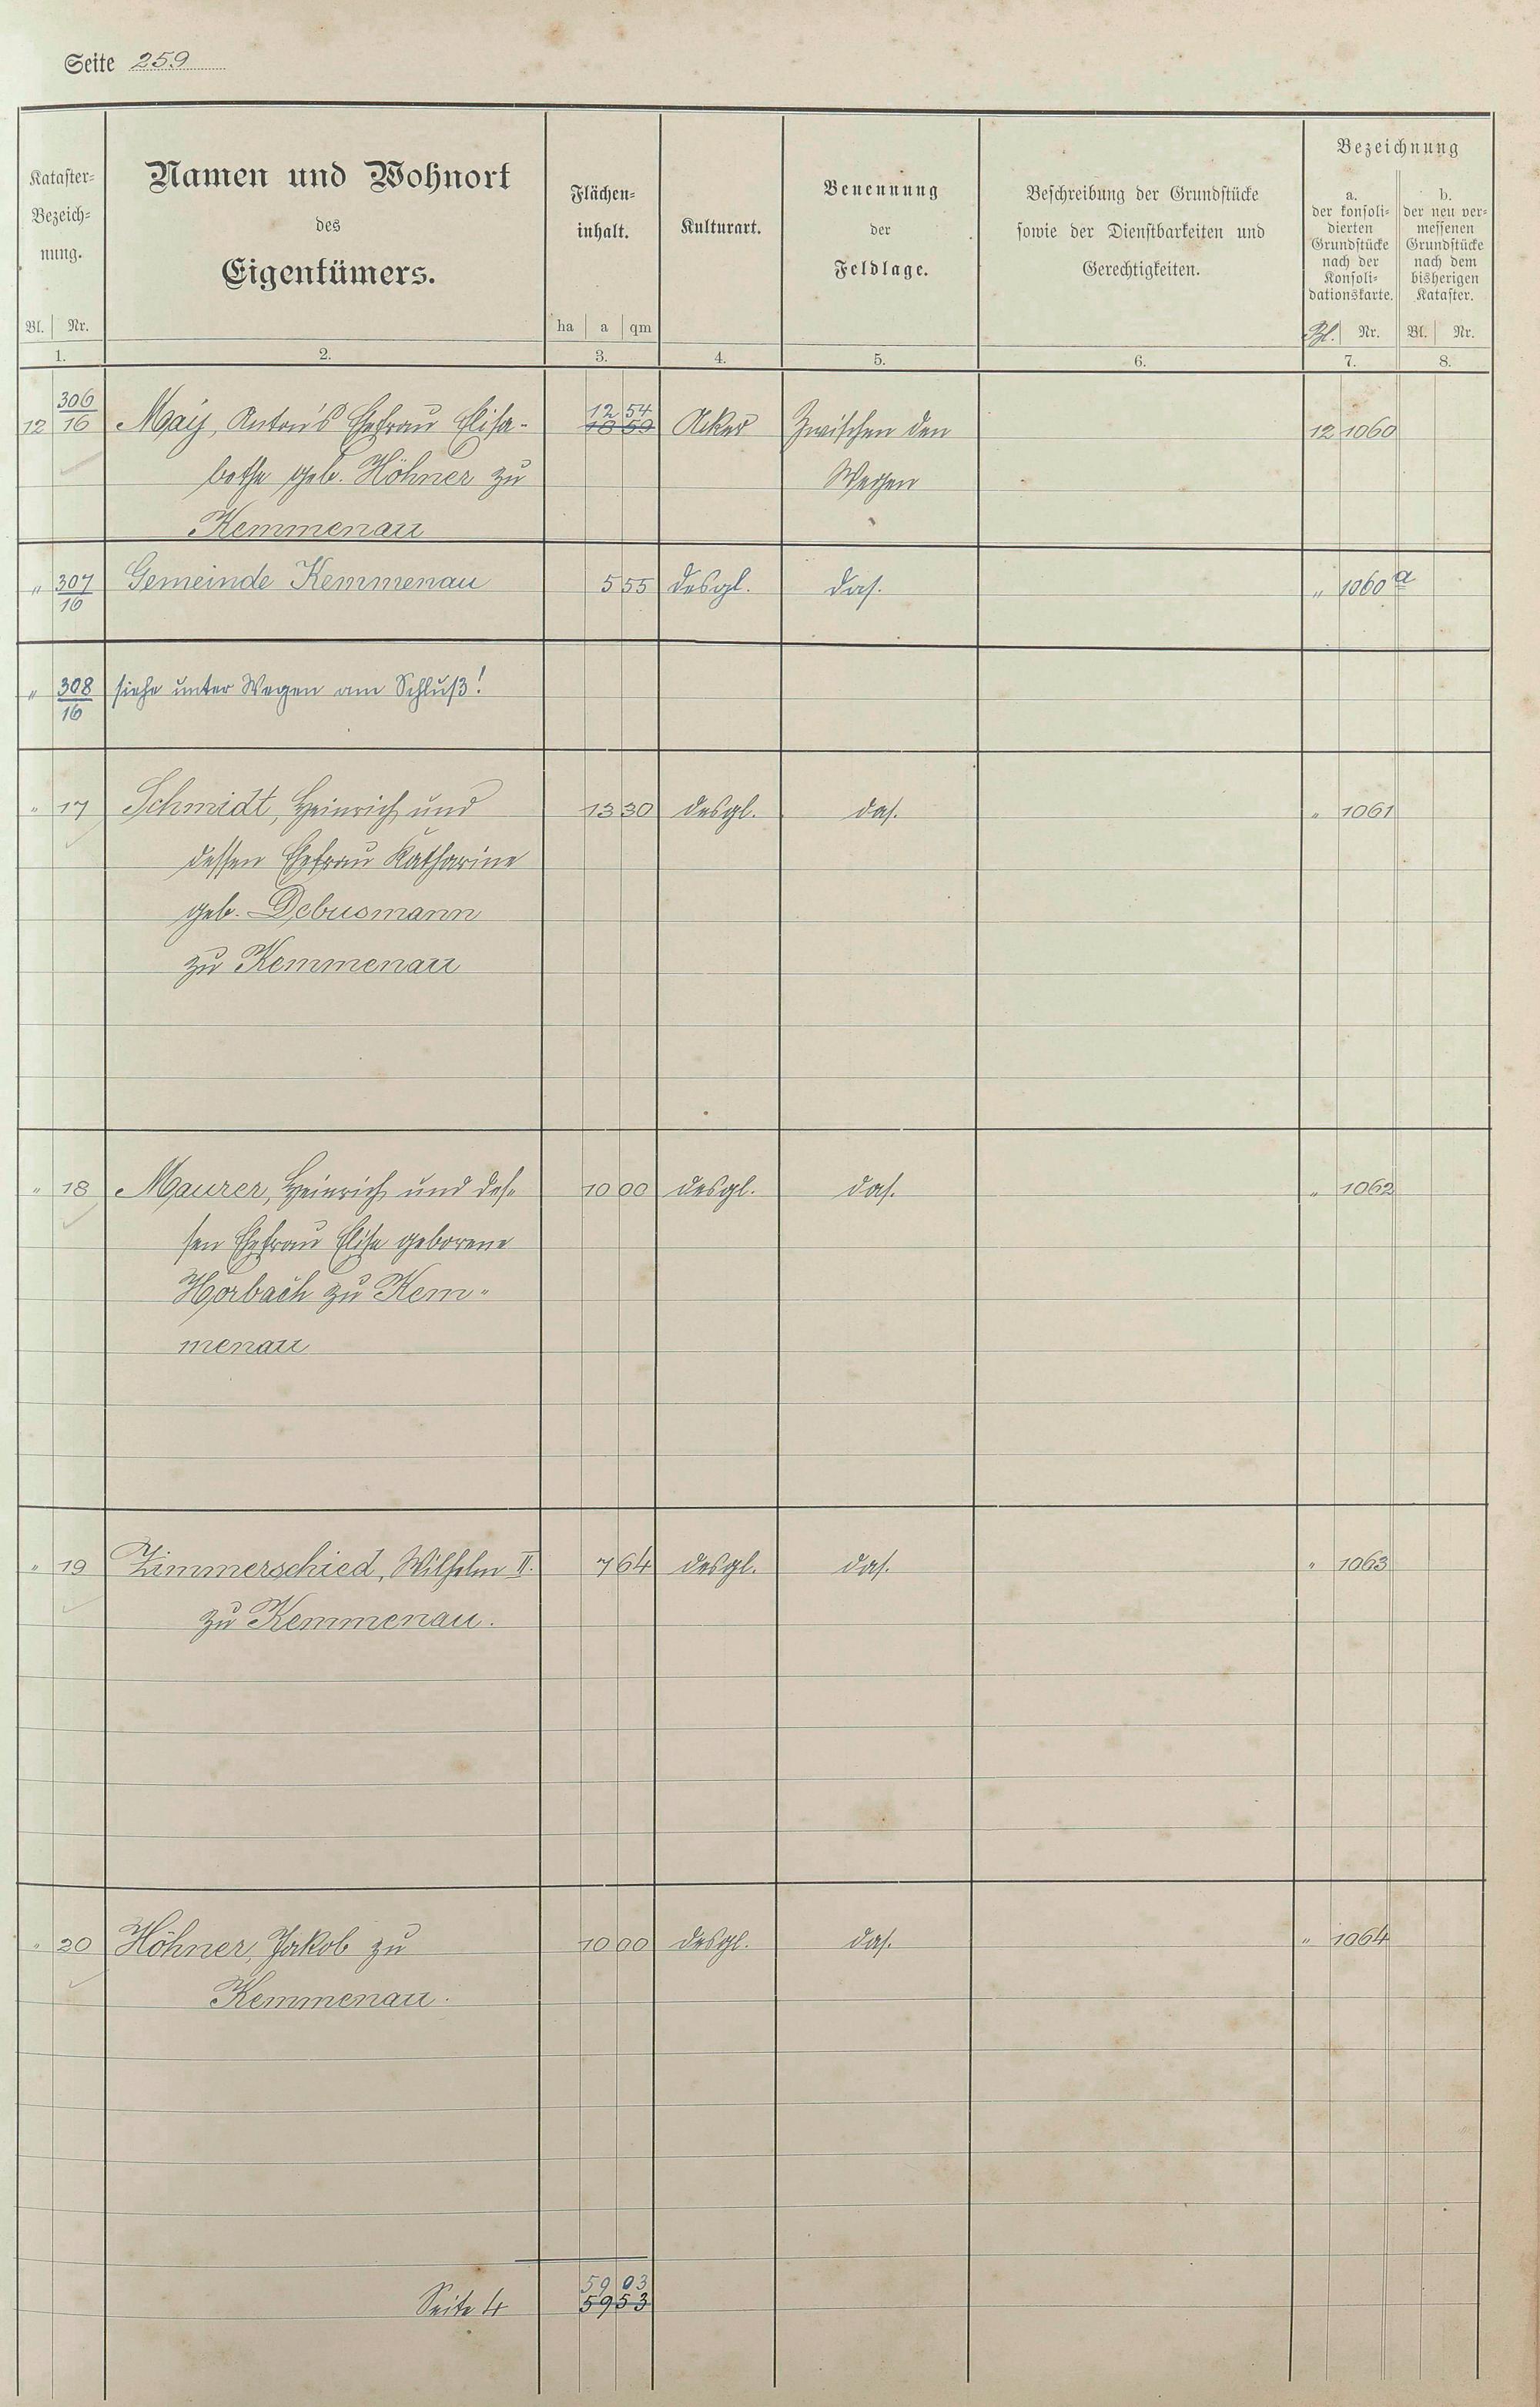 Seite 259
Kataster-
Bezeich-
nung.
Bl. Nr.
Namen und Wohnort
des
Eigentümers.
Flächen-
inhalt.
ha a qm
Kulturart.
Benennung
der
Feldlage.
Beschreibung der Grundstücke
sowie der Dienstbarkeiten und
Gerechtigkeiten.
Bezeichnung
a.
der konsoli-
dierten
Grundstücke
nach der
Konsoli-
dationskarte.
Bl. Nr.
b.
der neu ver-
messenen
Grundstücke
nach dem
bisherigen
Kataster.
Bl. Nr.
1. 2. 3. 4. 5. 6. 7. 8.
306 12 54
12 16 May, Anton's Ehefrau Elisa- Acker Zwischen den 12 1060
bethe geb. Höhner zu Wegen
Kemmenau
" 307 Gemeinde Kemmenau 5 55 desgl. das. " 1060 a
16
" 308 siehe unter Wegen am Schluß!
16
" 17 Schmidt, Heinrich und 13 30 desgl. das. " 1061
dessen Ehefrau Katharine
geb. Debusmann
zu Kemmenau
" 18 Maurer, Heinrich und des- 10 00 desgl. das. " 1062
sen Ehefrau Elise geborene
Horbach zu Kem-
menau
" 19 Zimmerschied, Wilhelm II. 7 64 desgl. das. " 1063
zu Kemmenau.
" 20 Höhner, Jakob zu 10 00 desgl. das. " 1064
Kemmenau.
59 03
Seite 4 59 53